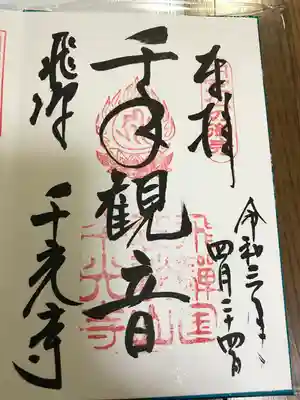 奉拝
令和三年
四月二十四日
千手観音
飛騨
千光寺
飛禅国
千光寺